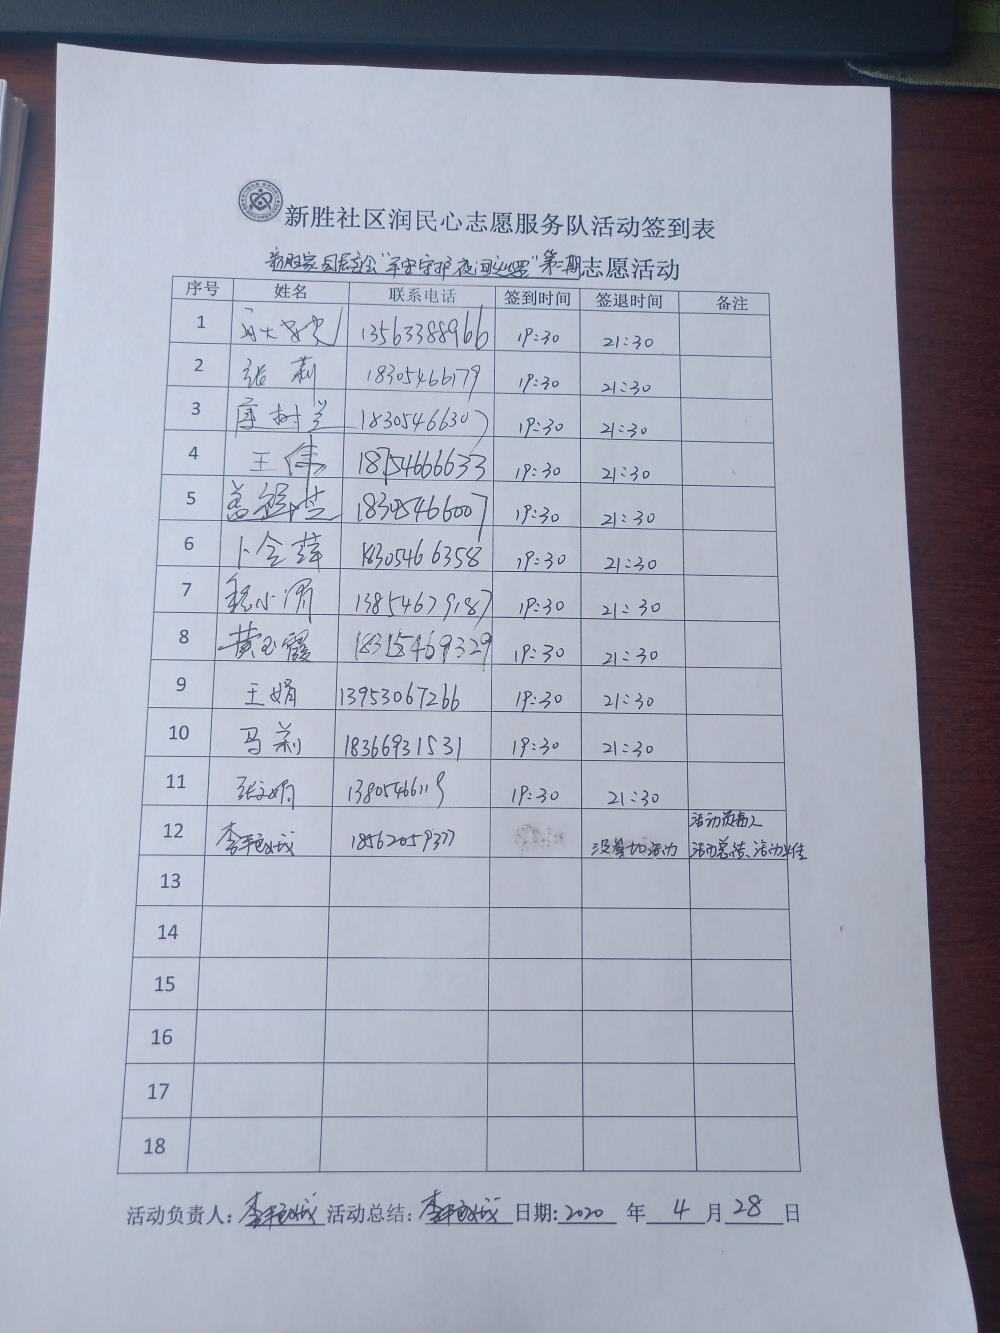 新胜社区润民心志愿服务队活动签到表
新胜家园居委会“平安守护夜间巡逻”第二期志愿活动
序号 姓名 联系电话 签到时间 签退时间 备注
1 13563388966 19:30 21:30
2 张莉 18305466179 19:30 21:30
3 唐树兰 18305466307 19:30 21:30
4 王伟 18754666633 19:30 21:30
5 18305466007 19:30 21:30
6 卜令萍 18305466358 19:30 21:30
7 程小渭 13854679187 19:30 21:30
8 黄玉霞 18315469329 19:30 21:30
9 王娟 13953067266 19:30 21:30
10 马莉 18366931531 19:30 21:30
11 张文娟 1380546619 19:30 21:30
活动负责人
12 18562059377 没参加活动 活动总结、活动
13
14
15
16
17
18
活动负责人: 活动总结: 日期: 2020 年 4 月 28 日